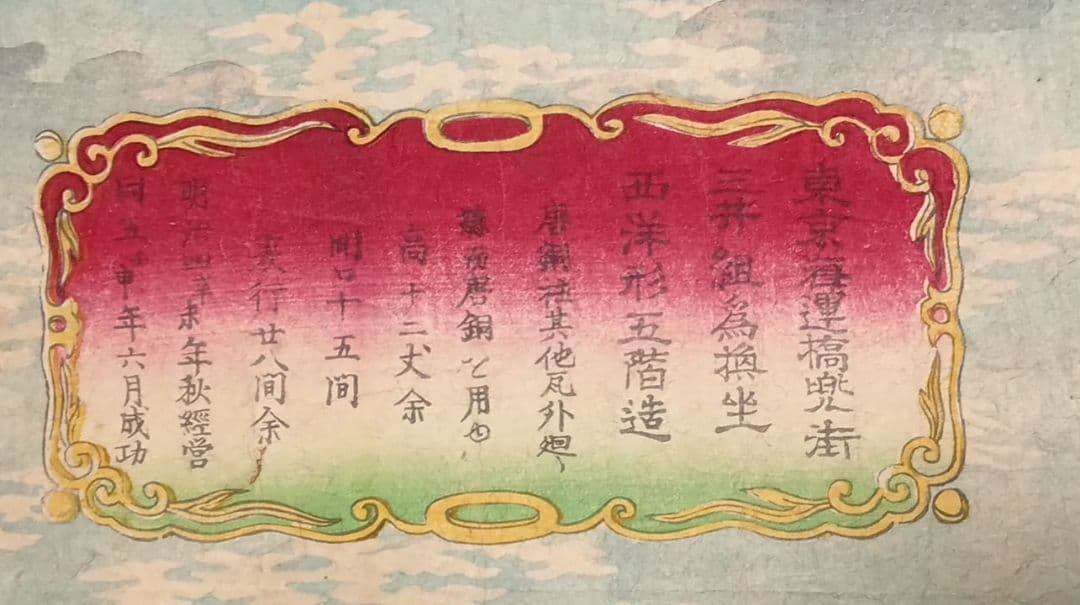 東京海運橋兜街
三井組為換坐
西洋形五階造
唐銅柱其他瓦外廻り
唐銅ヲ用ゆ
高十二丈余
間口十五間
裏行廿八間余
明治四辛未年秋経営
同五申年六月成功